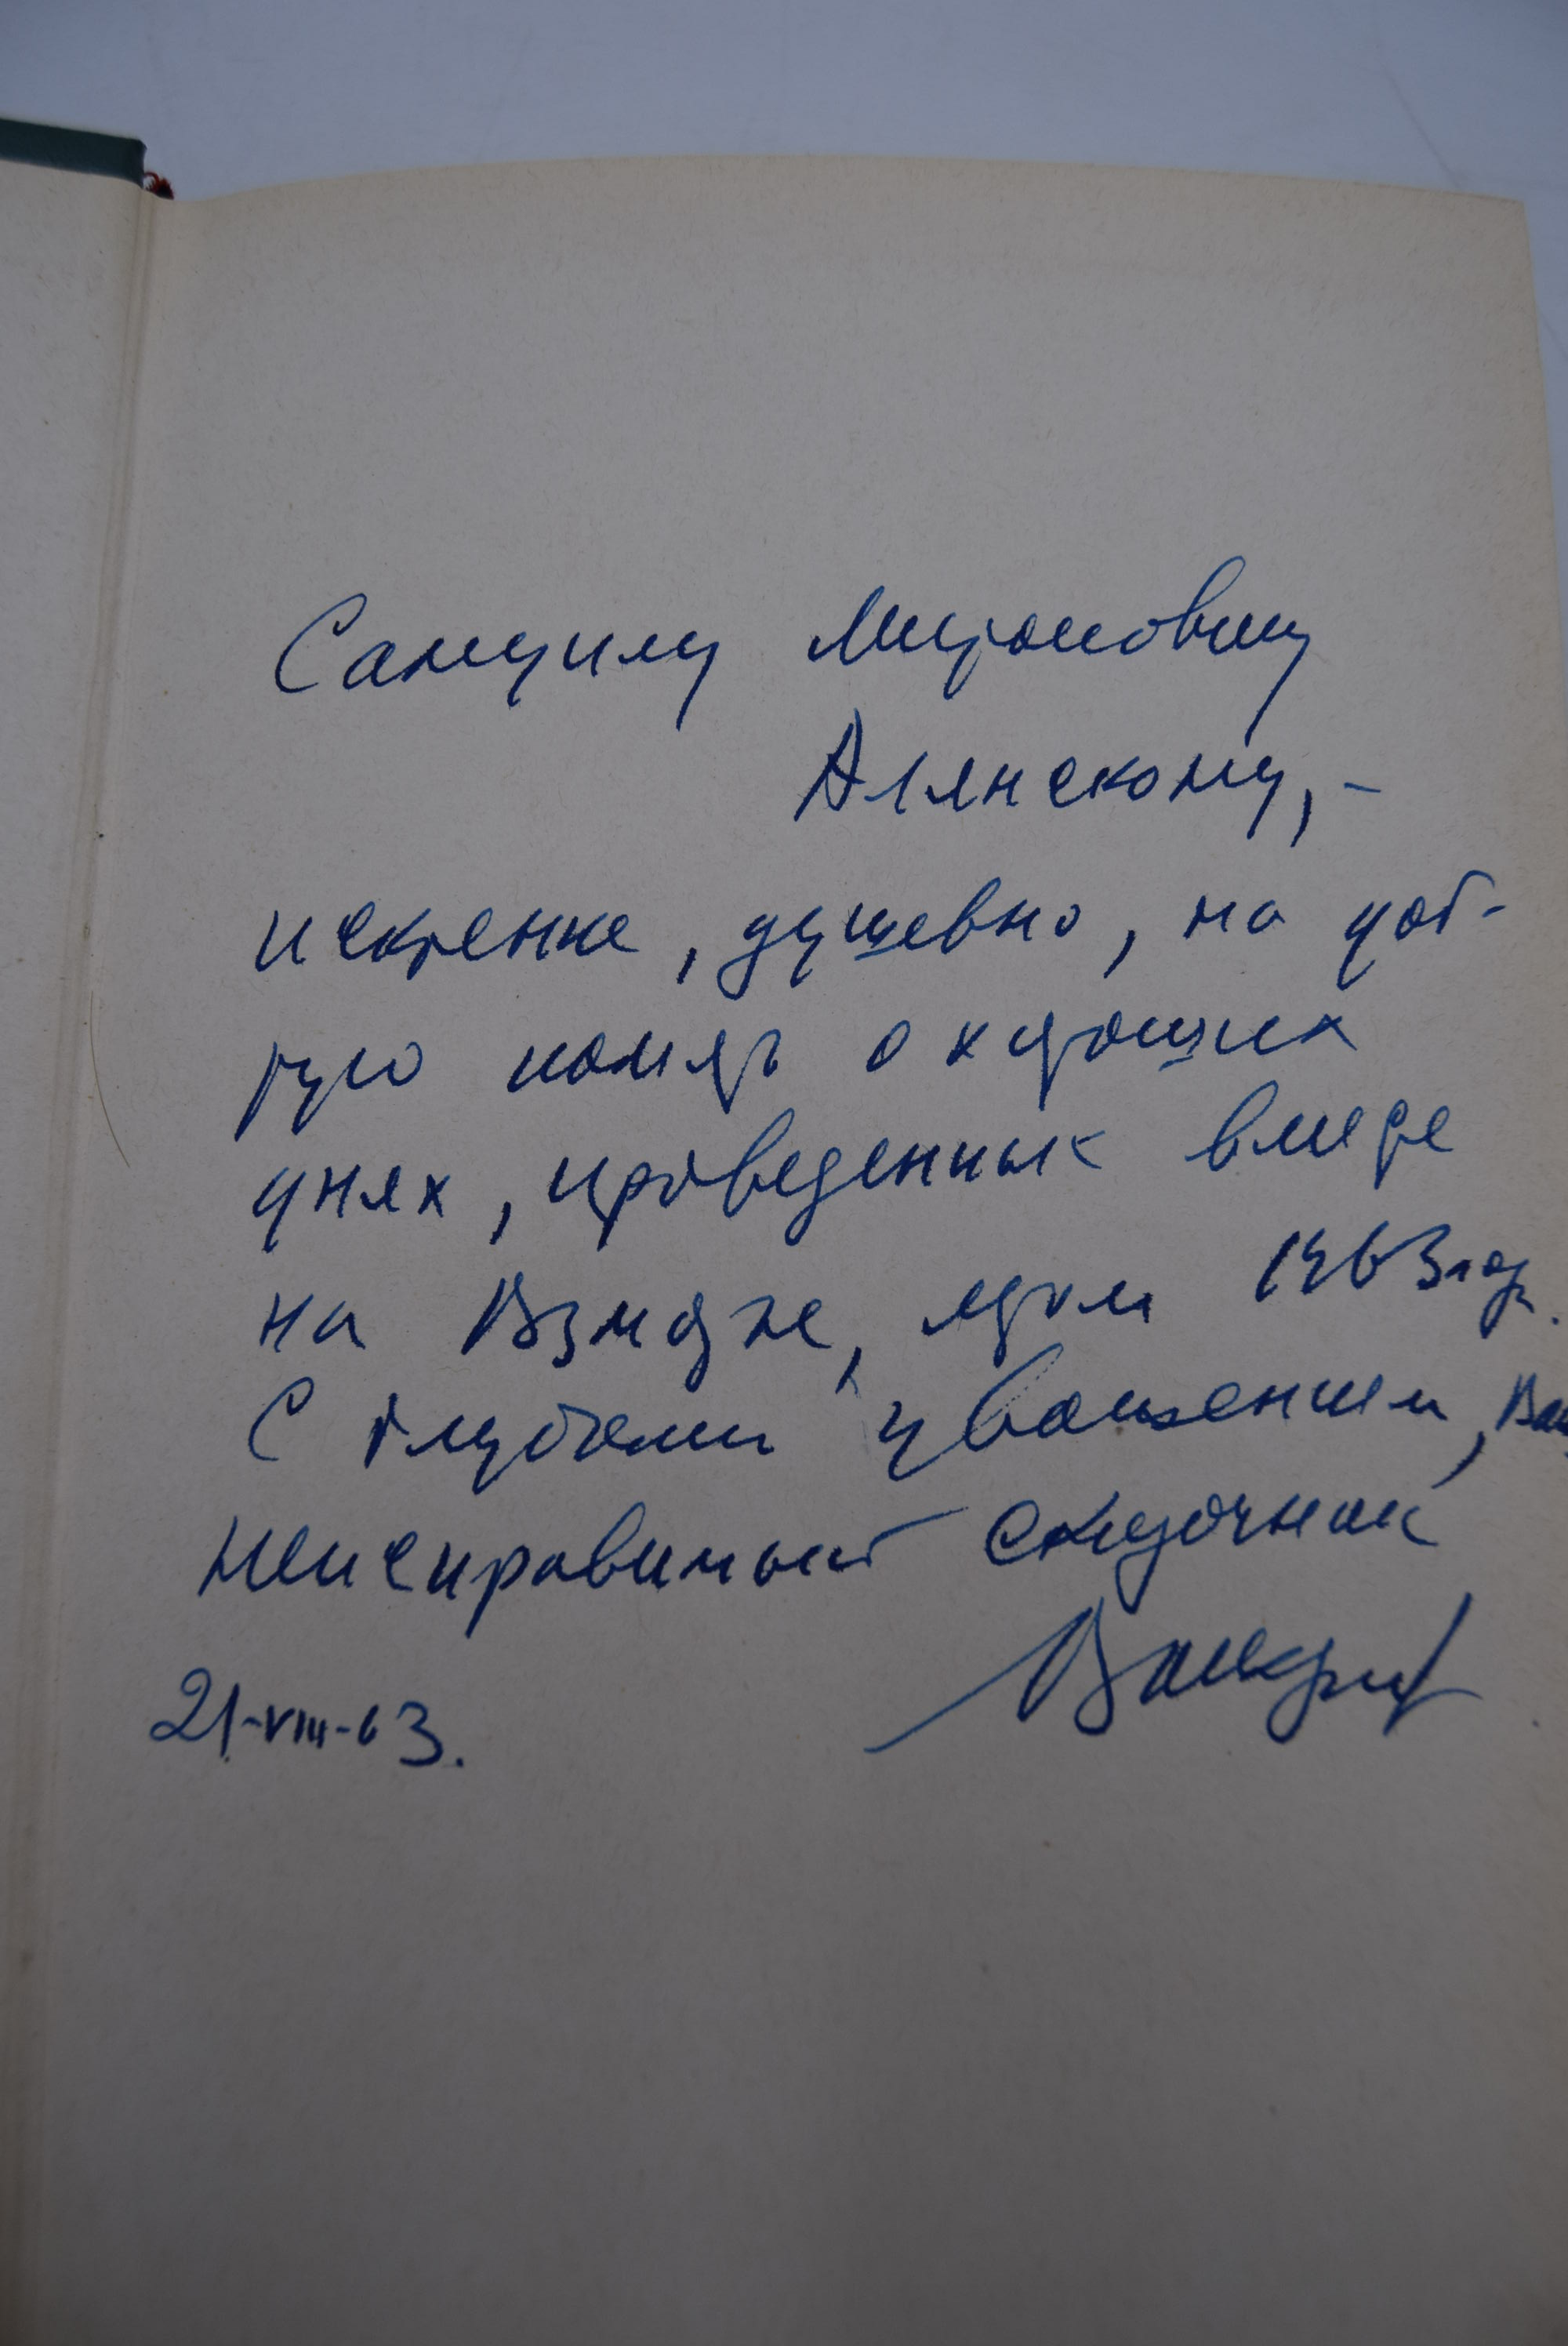 Самуилу Мироновичу
Алянскому, –
искренне, душевно, на доб-
рую память о хороших
днях, проведенных вместе
на Взморье, летом 1963 год.
С глубоким уважением, Ваш
неисправимый сказочник
21-VIII-63.